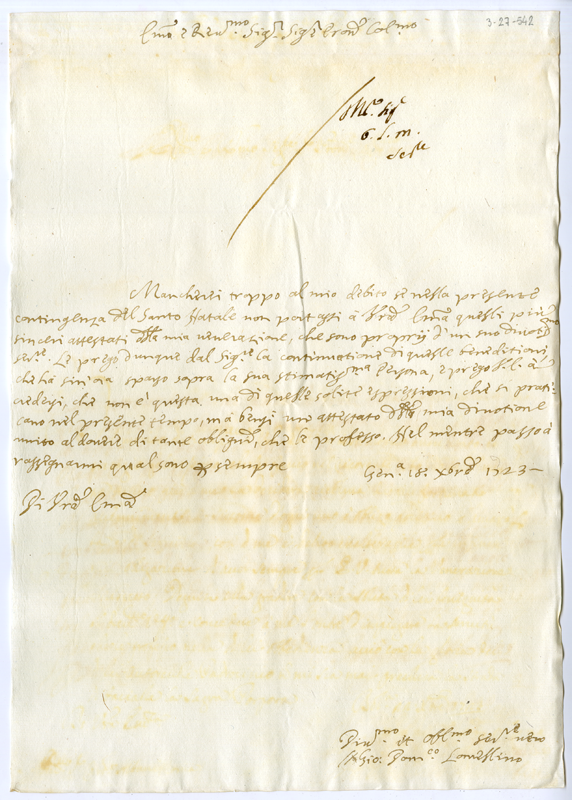 3-27-542
Em̃o e Rev.mo Sig.r Sig.r Pron Col.mo
6. S. m.
Mancherei troppo al mio debito se nella presente
contingenza del Santo Natale non portassi à Vr̃a Em̃a quelli più
sinceri attestati della mia venerazione, che sono proprij d'un suo divotis.mo
ser.re. Le prego dunque dal Sig.re la continuatione di quelle beneditioni,
che hà sin'ora sparso sopra la sua stimatis.ma Persona, e prego V.E. à
credersi, che non è questa una di quelle solite espressioni, che si prati-
cano nel presente tempo, mà bensì un attestato della mia divotione
unito al dovere di tante obligaz.ni, che le professo. Nel mentre passo à
rassegnarmi qual sono per sempre
Gen.a 18. Xbre 1723
Di Vr̃a Em̃a
Div.mo et Obbl.mo Ser.re vero
Gio. Dom.co Lomellino